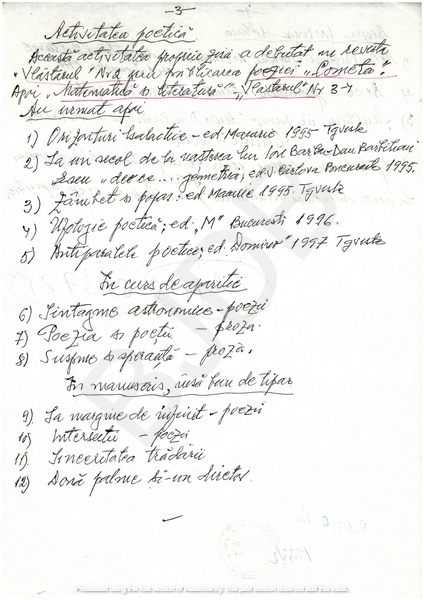 -3-
Activitatea poetică
Această activitatea propriu zisă a debutat in revista
"Vlăstarul" Nr 2 prin publicarea poeziei "Cometa".
Apoi "Matematică si literatură" - "Vlastarul" Nr 3-4
Au urmat apoi
1) Orizonturi Galactice - ed Macarie 1995 Tgviste
2) La un secol de la nasterea lui Ion Barbu-Dan Barbilian
Eseu "de ce .... geometrii; ed V. Cîrlova Bucuresti 1995.
3) Zâmbet si popas: ed Macarie 1995 Tgviste
4) Apologie poetică; ed. "M" Bucuresti 1996.
5) Antiparalele poetice; ed. Domino" 1997 Tgviste
În curs de aparitie
6) Sintagme astronomice - poezii
7) Poezia si poeții - proza.
8) Suspine si speranță - proză.
În manuscris, însă bun de tipar
9) La margine de infinit - poezii
10) Intersectii - poezii
11) Sinceritatea trădării
12) Două palme si-un director.